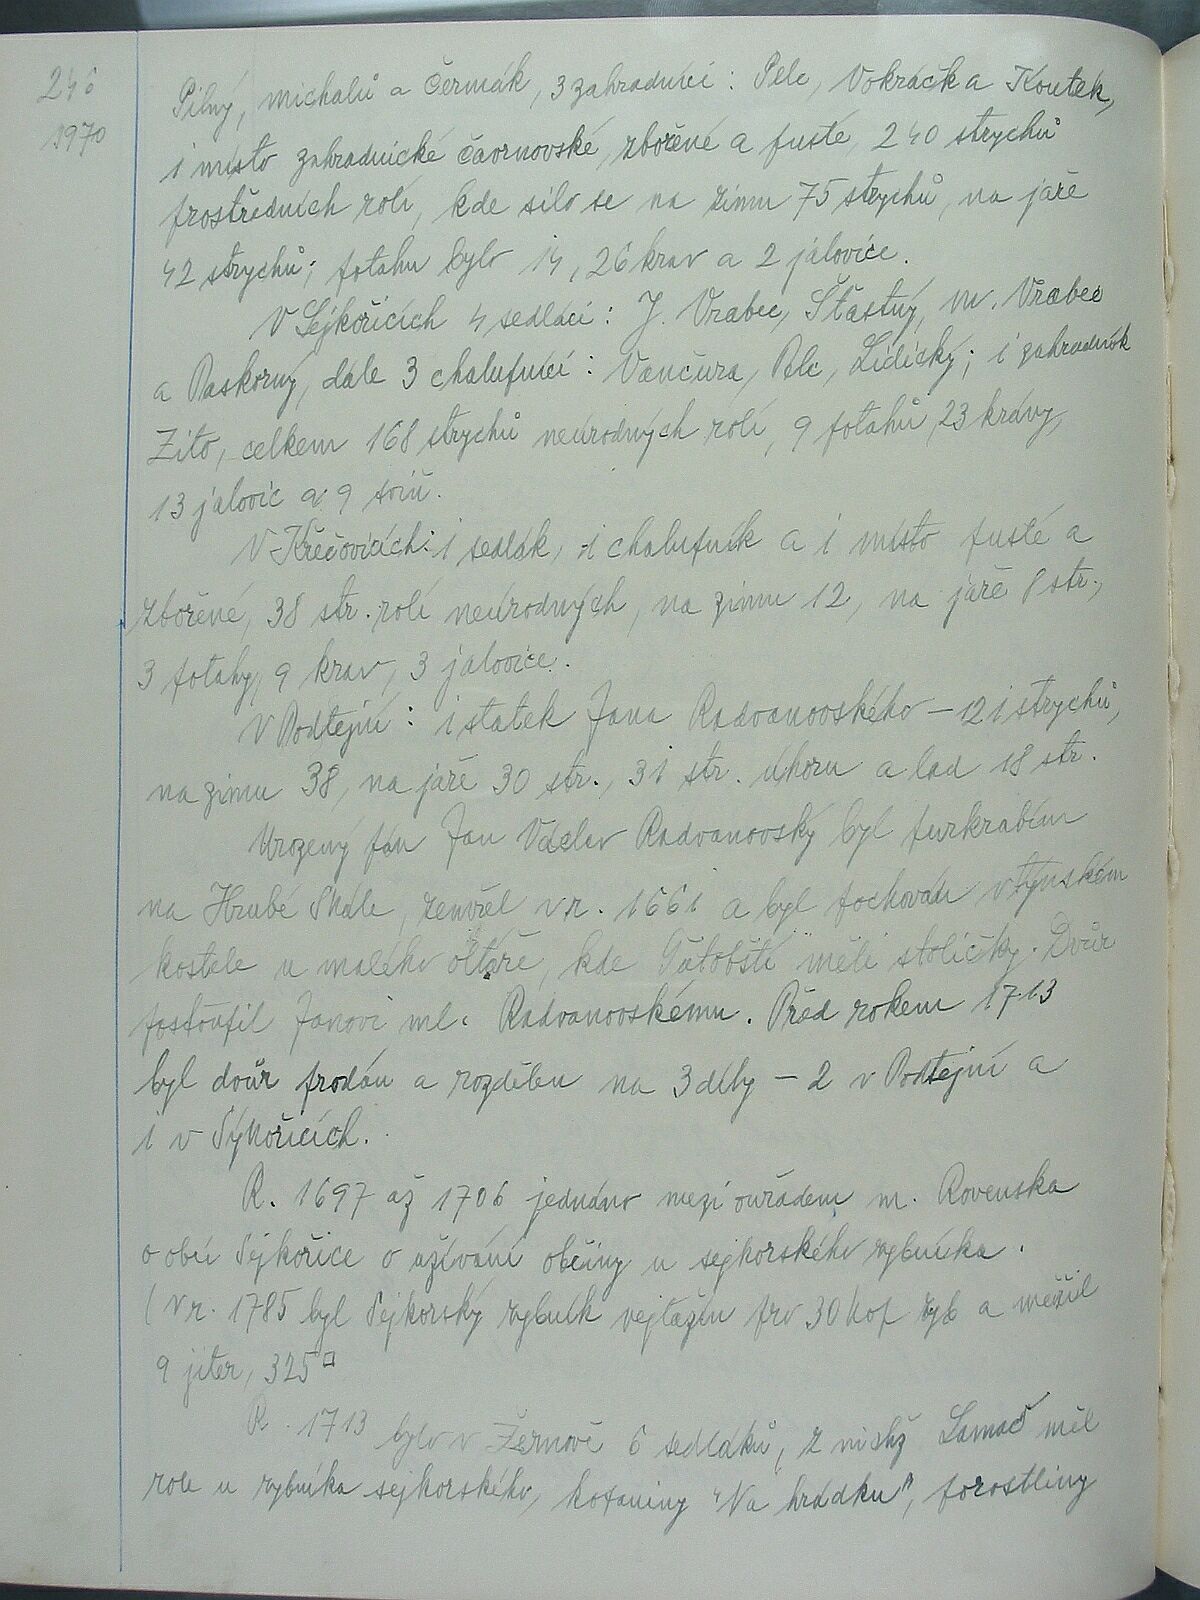 246
1970
Pilný, Michalů a Čermák, 3 zahradníci: Pele, Vokráčka Koutek,
1 místo zahradnické čavrnovské, zbořené a pusté, 240 strychů
prostředních rolí, kde silo se na zimu 75 strychů, na jaře
42 strychů; potahu bylo 14, 26 krav a 2 jalovice.
V Sejkořicích 4 sedláci: J. Vrabec, Šťastný, M. Vrabec
a Paskorný, dále 3 chalupníci: Vančura, Pelc, Lidický; 1 zahradník
Žito, celkem 168 strychů neúrodných rolí, 9 potahů, 23 krávy,
13 jalovic a 9 sviň.
V Křečovicích: 1 sedlák, 1 chalupník a 1 místo pusté a
zbořené, 38 str. rolí neúrodných, na zimu 12, na jaře 8 str.,
3 potahy, 9 krav, 3 jalovice.
V Podtejní: 1 statek Jana Radvanovského – 121 strychů,
na zimu 38, na jaře 30 str., 31 str. úhoru a lad 18 str.
Urozený pán Jan Václav Radvanovský byl purkrabím
na Hrubé Skále, zemřel v r. 1661 a byl pochován v týnském
kostele u malého oltáře, kde měli stoličky. Dvůr
postoupil Janovi ml. Radvanovskému. Před rokem 1713
byl dvůr prodán a rozdělen na 3 díly – 2 v Podtejní a
1 v Sýkořicích.
R. 1697 až 1706 jednáno mezi ouřadem m. Rovenska
o obci Sejkořice o užívání občiny u sejkorského rybníka.
(V r. 1785 byl Sejkorský rybník vejtažín pro 30 kop ryb a měřil
9 jiter, 325□
R. 1713 bylo v Žernově 6 sedláků, z nichž Lamač měl
role u rybníka sejkorského, kopaniny "Na hrádku", porostliny